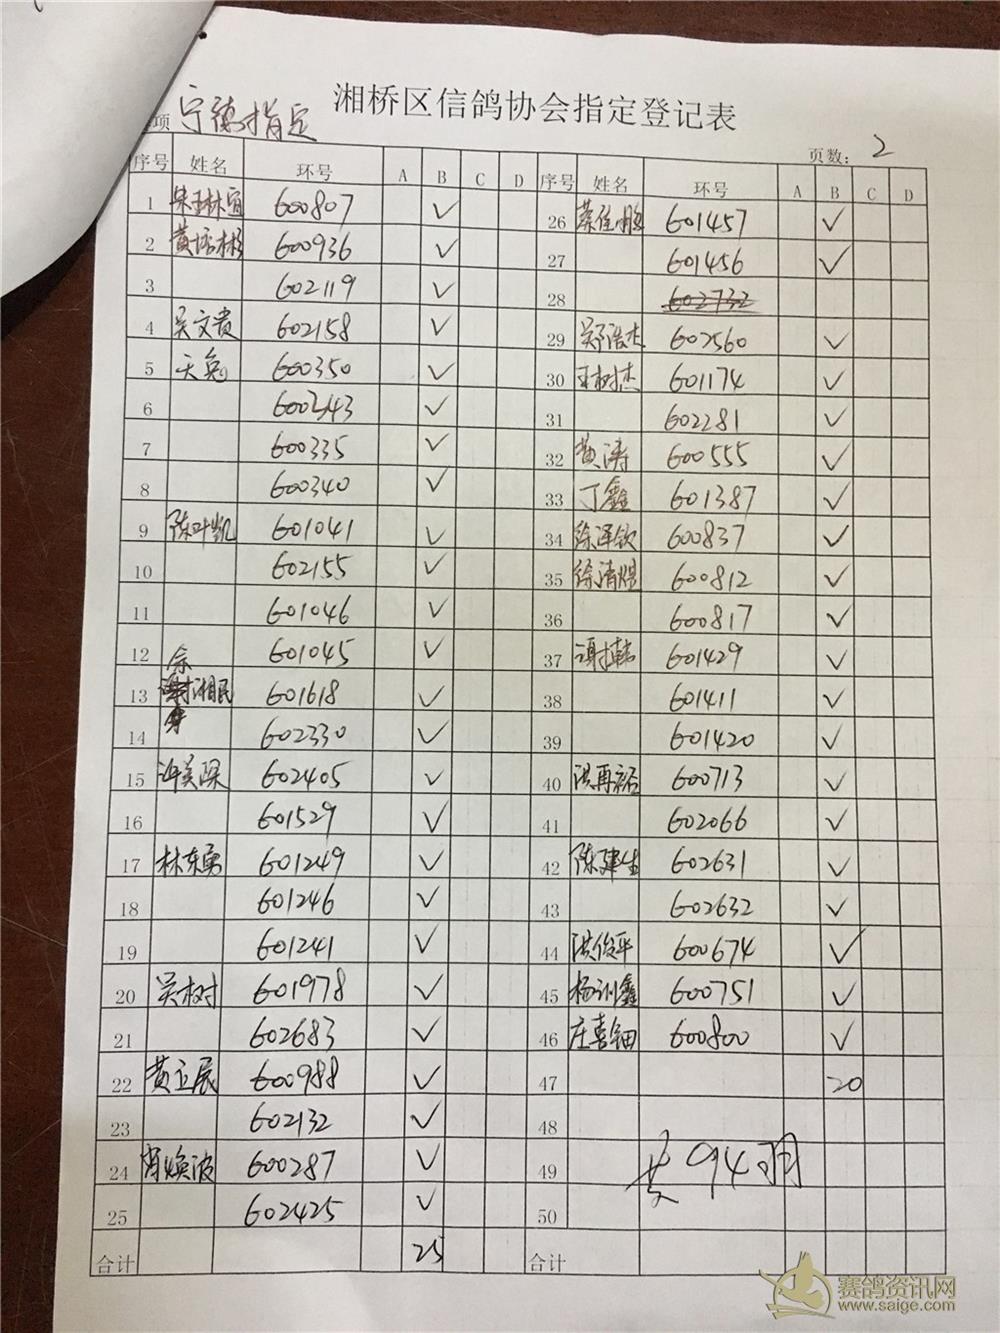 湘桥区信鸽协会指定登记表
项 宁德指定
页数: 2
序号 姓名 环号 A B C D 序号 姓名 环号 A B C D
1 600807 ✓
2 黄培彬 600936 ✓
3 602119 ✓
4 吴文贵 602158 ✓
5 天兔 600350 ✓
6 600343 ✓
7 600335 ✓
8 600340 ✓
9 陈叶凯 601041 ✓
10 602155 ✓
11 601046 ✓
12 601045 ✓
13 余湘民 601618 ✓
14 602330 ✓
15 许美深 602405 ✓
16 601529 ✓
17 林东勇 601249 ✓
18 601246 ✓
19 601241 ✓
20 吴树 601978 ✓
21 602683 ✓
22 黄立展 600988 ✓
23 602132 ✓
24 肖焕波 600287 ✓
25 602425 ✓
合计 25
26 蔡佳鹏 601457 ✓
27 601456 ✓
28 602732
29 郑浩杰 602560 ✓
30 王树杰 601174 ✓
31 602281 ✓
32 黄涛 600555 ✓
33 丁鑫 601387 ✓
34 徐泽钦 600837 ✓
35 徐清煜 600812 ✓
36 600817 ✓
37 谢韩 601429 ✓
38 601411 ✓
39 601420 ✓
40 洪再裕 600713 ✓
41 602066 ✓
42 陈建生 602631 ✓
43 602632 ✓
44 洪俊平 600674 ✓
45 杨训鑫 600751 ✓
46 庄喜钿 600800 ✓
47 20
48
49
50
共94羽
合计
赛鸽资讯网
www.saige.com